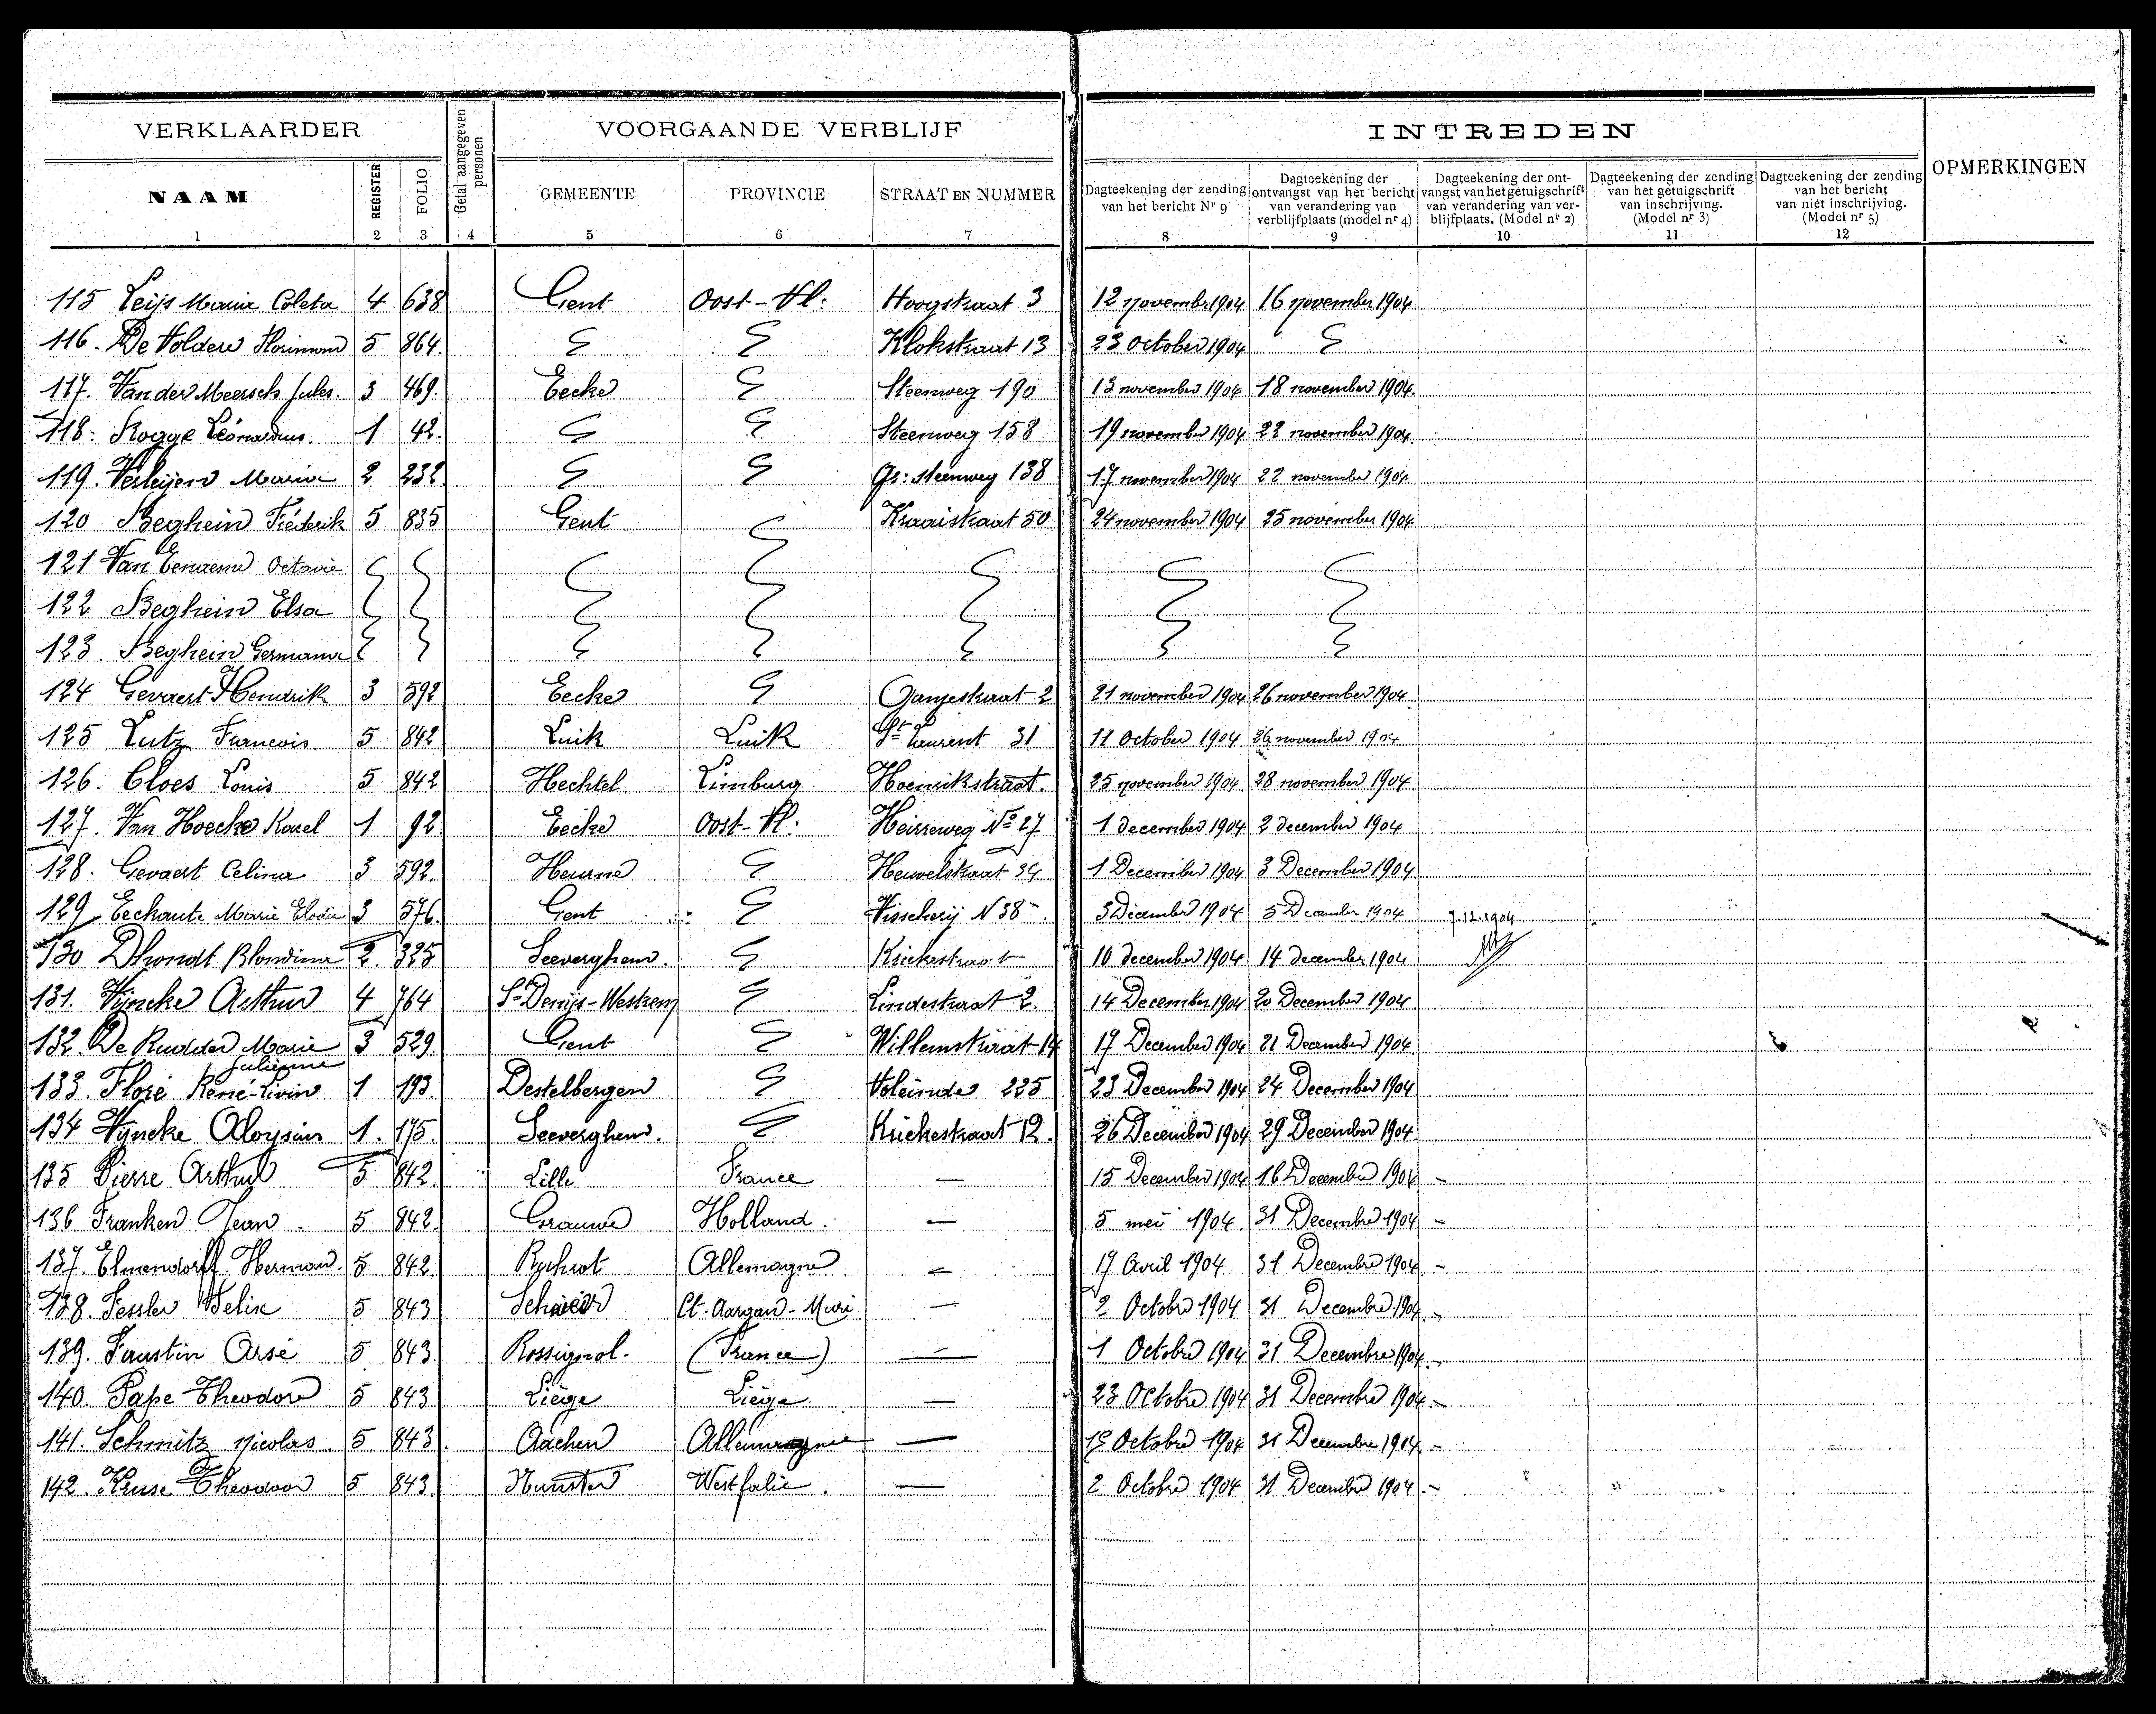 VERKLAARDER
Getal aangegeven personen
VOORGAANDE VERBLIJF
INTREDEN
OPMERKINGEN
NAAM REGISTER FOLIO GEMEENTE PROVINCIE STRAAT EN NUMMER
Dagteekening der zending van het bericht Nr 9
Dagteekening der ontvangst van het bericht van verandering van verblijfplaats (model nr 4)
Dagteekening der ontvangst van het getuigschrift van verandering van verblijfplaats. (Model nr 2)
Dagteekening der zending van het getuigschrift van inschrijving. (Model nr 3)
Dagteekening der zending van het bericht van niet inschrijving. (Model nr 5)
1 2 3 4 5 6 7 8 9 10 11 12
115 Leijs Maria Coleta 4 638 Gent Oost-Vl: Hoogstraat 3 12 november 1904 16 november 1904
116. De Volder Florimond 5 864. Klokstraat 13 23 October 1904
117. Van der Meersch Jules. 3 469. Eecke Steenweg 190 13 november 1904 18 november 1904
118. Rogge 1 42. Steenweg 158 19 november 1904 22 november 1904
119. Maria 2 232 Gr: steenweg 138 17 november 1904 22 november 1904
120 Beghein Fréderik 5 835 Gent Kraaistraat 50 24 november 1904 25 november 1904
121 Van Octavie
122 Beghein Elsa
123. Beghein Germana
124 Gevaert Hendrik 3 592 Eecke Ganzestraat 2 21 november 1904 26 november 1904
125 Lutz Francois 5 842 Luik Luik St Laurent 31 11 October 1904 26 november 1904
126. Cloes Louis 5 842 Hechtel Limburg 25 november 1904 28 november 1904
127. Van Hoecke Karel 1 92 Eecke Oost-Vl: Heirreweg No 27 1 december 1904 2 december 1904
128. Gevaert Celina 3 592. Heurne Heuvelstraat 34 1 December 1904 3 December 1904
129 Eeckaute Marie Elodie 3 576. Gent Visscherij N 38 3 December 1904 5 December 1904 7.12.1904
130 Dhondt Blondina 2. 325 Seeverghem. Krickestraat 10 december 1904 14 december 1904
131. Wyncke Arthur 4 764 St Denijs-Westrem Lindestraat 2. 14 December 1904 20 December 1904
132. De Rudder Marie Julienne 3 529. Gent Willemstraat 14 17 December 1904 21 December 1904
133. Floré René-Livin 1 193. Destelbergen Voleinde 225 23 December 1904 24 December 1904
134 Wyncke Aloysius 1. 175. Seeverghem. Krickestraat 12. 26 December 1904 29 December 1904
135 Pierre Arthur 5 842. Lille France — 15 December 1904 16 December 1904 -
136 Franken Jean. 5 842. Holland. — 5 mei 1904. 31 Decembre 1904 -
137. Elmendorff Herman. 5 842 Allemagne — 17 Avril 1904 31 Decembre 1904 -
138. Fessler Felix 5 843 Ct. Aargau-Muri — 2 Octobre 1904 31 Decembre 1904 -
139. Faustin Arsé 5 843. Rossignol. (France) — 1 Octobre 1904 31 Decembre 1904 -
140. Pape Theodore 5 843 Liège Liège. — 23 Octobre 1904 31 Decembre 1904 -
141. Schmitz nicolas. 5 843 Aachen Allemagne — 15 Octobre 1904 31 Decembre 1904 -
142. Kruse Theodoor 5 843 Munster Westfalie. — 2 Octobre 1904 31 Decembre 1904 -